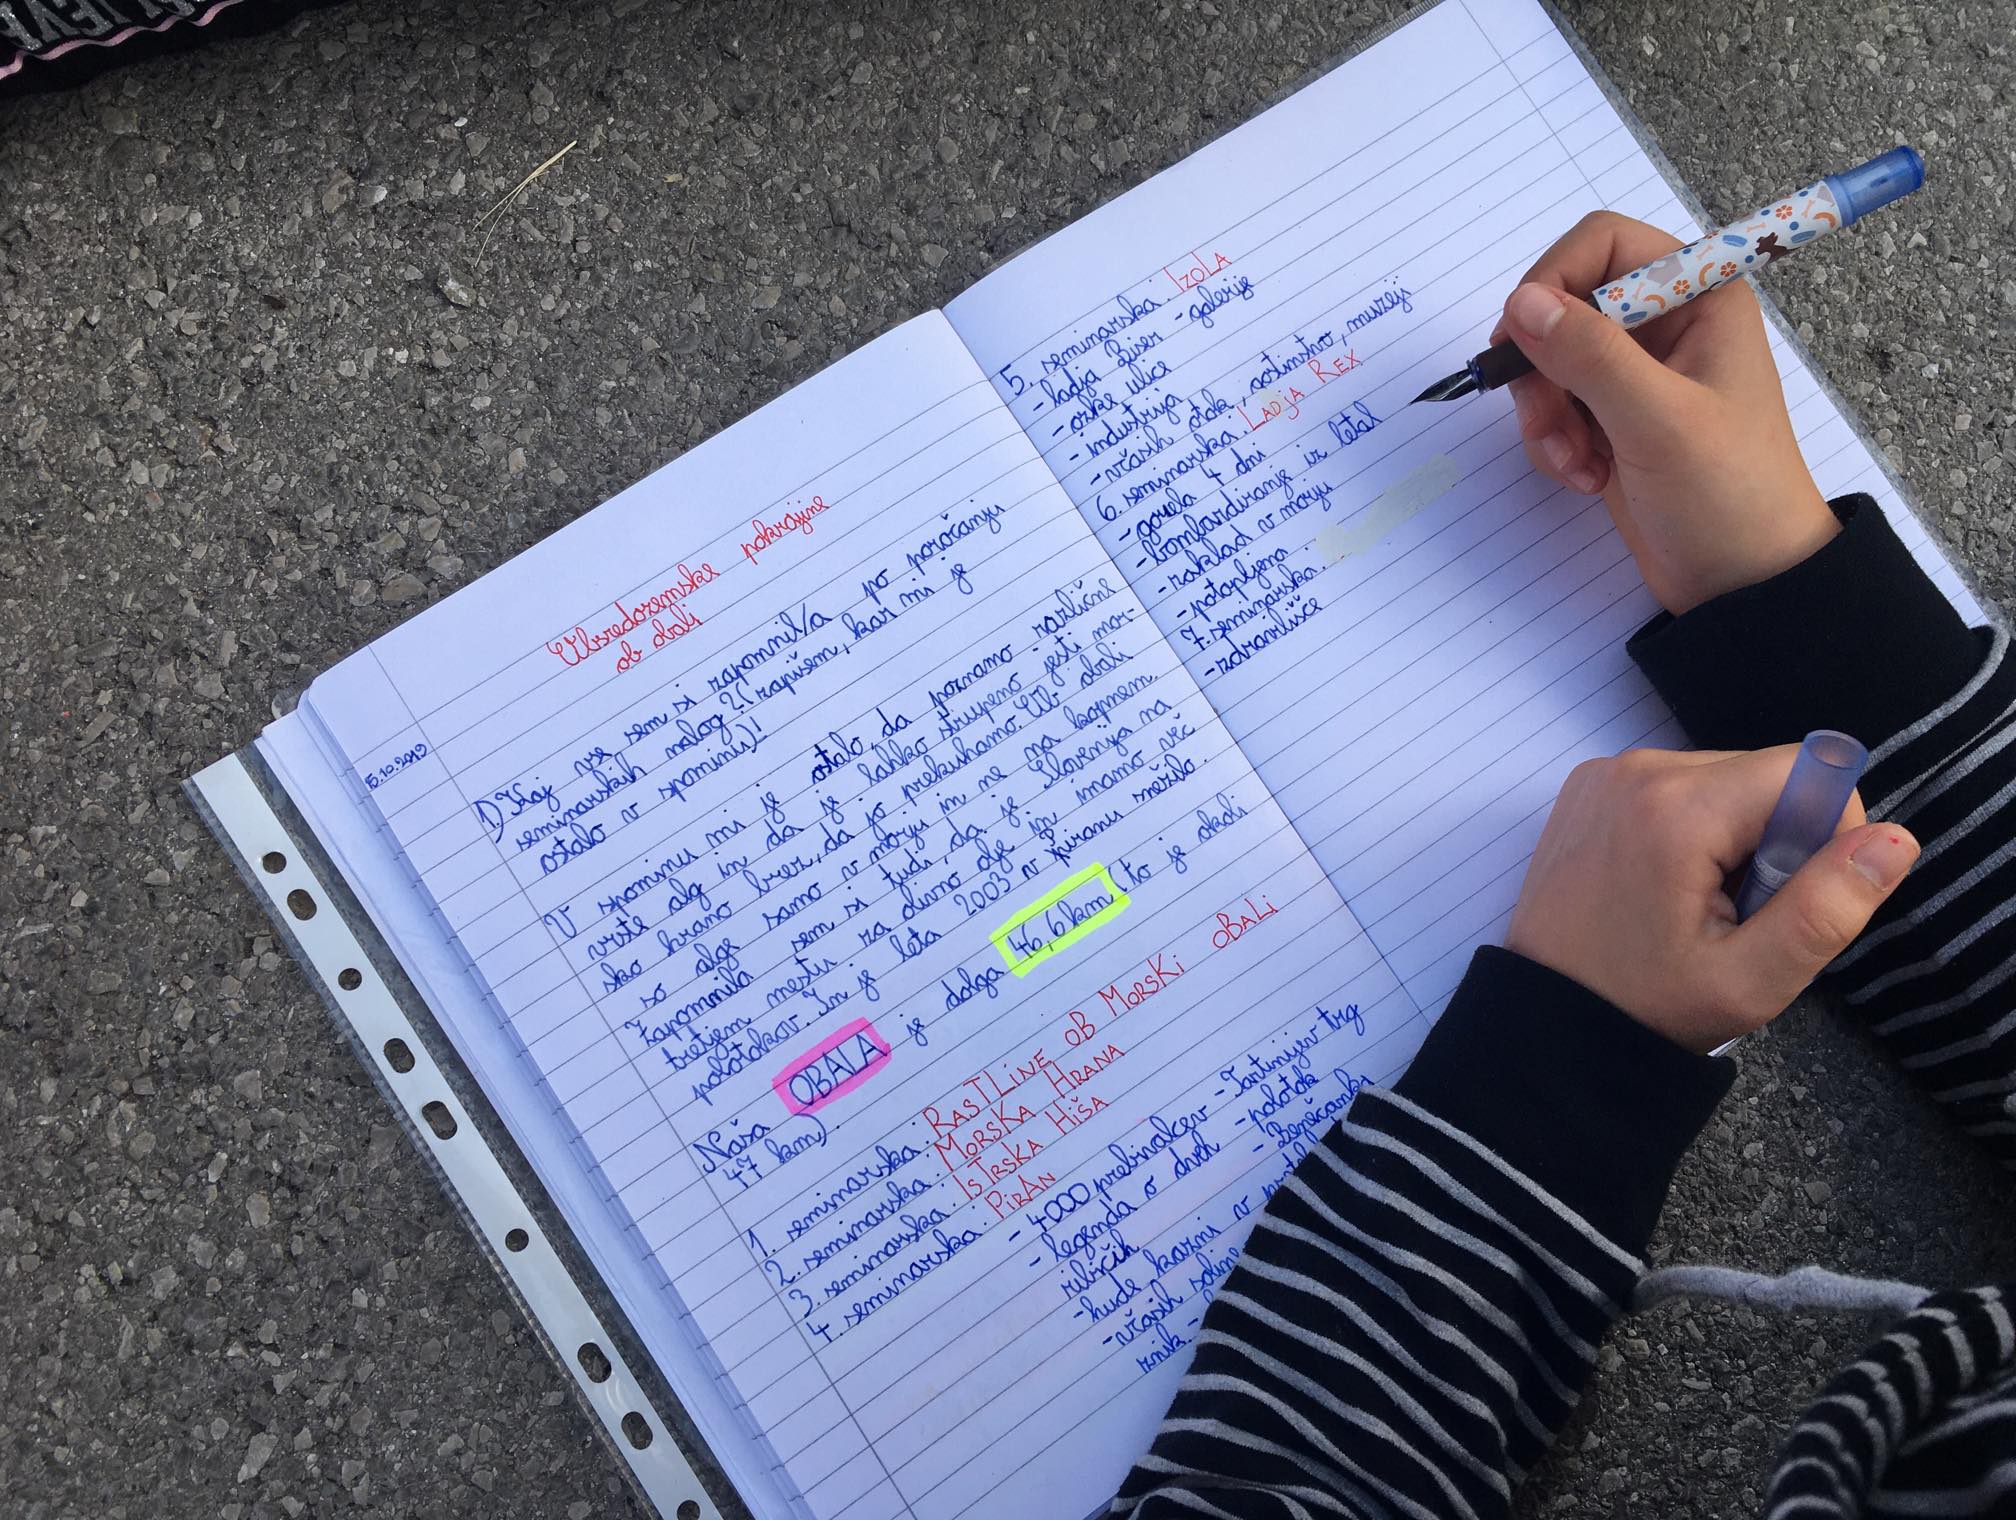 Obsredozemske pokrajine
ob obali
5.10.2019
1) Kaj vse sem si zapomnil/a po poročanju
seminarskih nalog? (zapišem, kar mi je
ostalo v spominu)!
V spominu mi je ostalo, da poznamo različne
vrste alg in da je lahko strupeno jesti mor-
sko hrano brez, da jo prekuhamo. Ob obali
so alge samo v morju in ne na kopnem.
Zapomnila sem si tudi, da je Slovenija na
tretjem mestu za olivno olje in imamo več
polotokov. In je leta 2003 v Piranu snežilo.
Naša OBALA je dolga 46,6 km (to je okoli
47 km).
1. seminarska: RASTLINE OB MORSKI OBALI
2. seminarska: MORSKA HRANA
3. seminarska: ISTRSKA HIŠA
4. seminarska: PIRAN
- 4000 prebivalcev - Tartinijev trg
- legenda o dveh - polotok
ribičih - Benečanka
- hude kazni v
- včasih
5. seminarska: IZOLA
- ladja Biser - galerije
- ozke ulice
- industrija
- včasih otok, sotinstvo, muzeji
6. seminarska: LADJA REX
- gorela 4 dni
- bombardiranje iz letal
- zaklad v morju
- potopljena
7. seminarska:
- zdravilišče